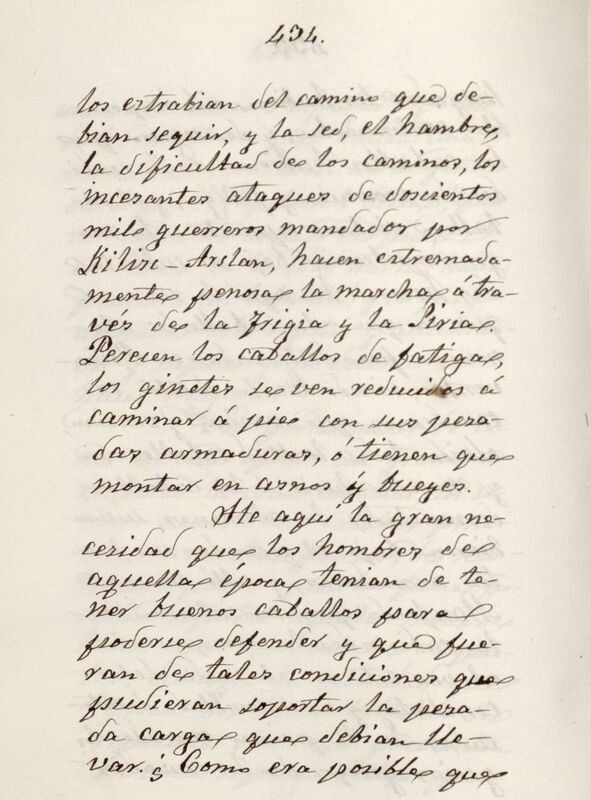 434.
los estrabian del camino que de-
bian seguir, y la sed, el hambre,
la dificultad de los caminos, los
incesantes ataques de doscientos
mil guerreros mandados por
Kilize-Arslan, hacen estremada-
mente penosa la marcha á tra-
vés de la Frigia y la Siria.
Perecen los caballos de fatiga,
los ginetes se ven reducidos á
caminar á pie con sus pesa-
das armaduras, ó tienen que
montar en asnos y bueyes.
He aquí la gran ne-
cesidad que los hombres de
aquella época tenian de te-
ner buenos caballos para
poderse defender y que fue-
ran de tales condiciones que
pudieran soportar la pesa-
da carga que debian lle-
var. ¿Como era posible que